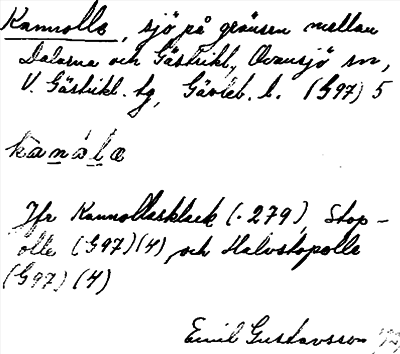 Kannolla, sjö på gränsen mellan
Dalarna och Gästrikl., Ovansjö sn,
V. Gästrikl. tg, Gävleb. l. (G97) 5
kanåla
Jfr Kannollasklack (. 279), Stop-
olle (G97)(4) och Halvstopolle
(G97) (4)
Emil Gustavsson